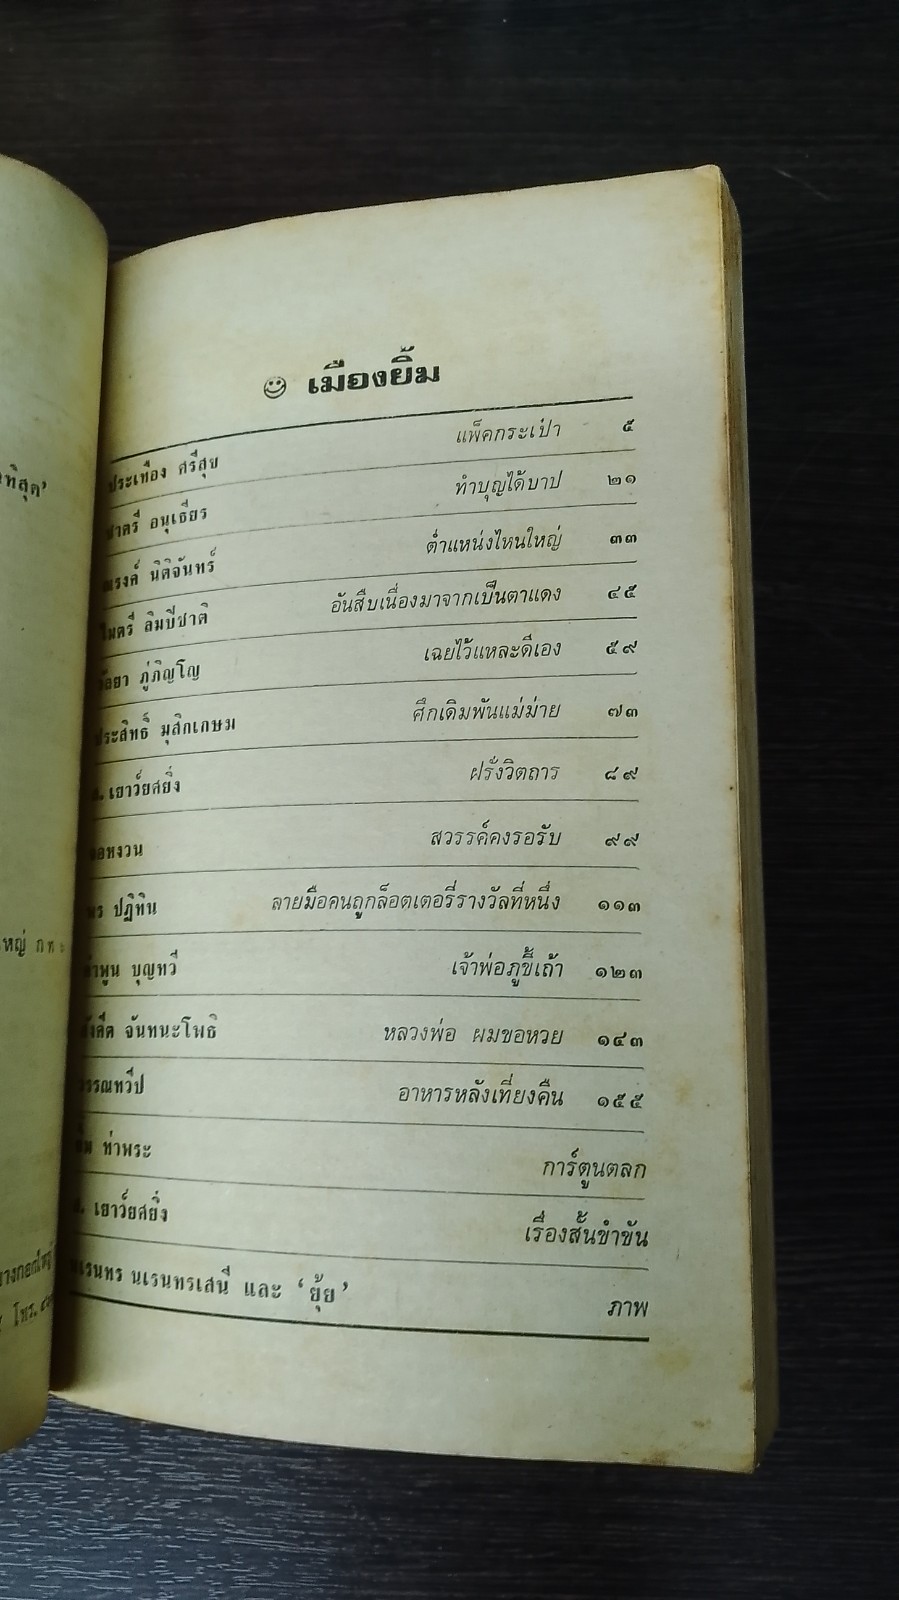 เมืองยิ้ม
ประเทือง ศรีสุข แพ็คกระเป๋า ๕
ชาตรี อนุเธียร ทำบุญได้บาป ๒๑
ณรงค์ นิติจันทร์ ตำแหน่งไหนใหญ่ ๓๓
ไมตรี ลิมปิชาติ อันสืบเนื่องมาจากเป็นตาแดง ๔๕
วัลยา ภู่ภิญโญ เฉยไว้แหละดีเอง ๕๙
ประสิทธิ์ มุสิกเกษม ศึกเดิมพันแม่ม่าย ๗๓
เยาว์ยศยิ่ง ฝรั่งวิตถาร ๘๙
สวรรค์คงรอรับ ๙๙
ปฏิทิน ลายมือคนถูกล็อตเตอรี่รางวัลที่หนึ่ง ๑๑๓
คำพูน บุญทวี เจ้าพ่อภูขี้เถ้า ๑๒๓
จันทนะโพธิ หลวงพ่อ ผมขอหวย ๑๔๓
อาหารหลังเที่ยงคืน ๑๕๕
ท่าพระ การ์ตูนตลก
เยาว์ยศยิ่ง เรื่องสั้นขำขัน
นเรนทรเสนี และ 'ยุ้ย' ภาพ